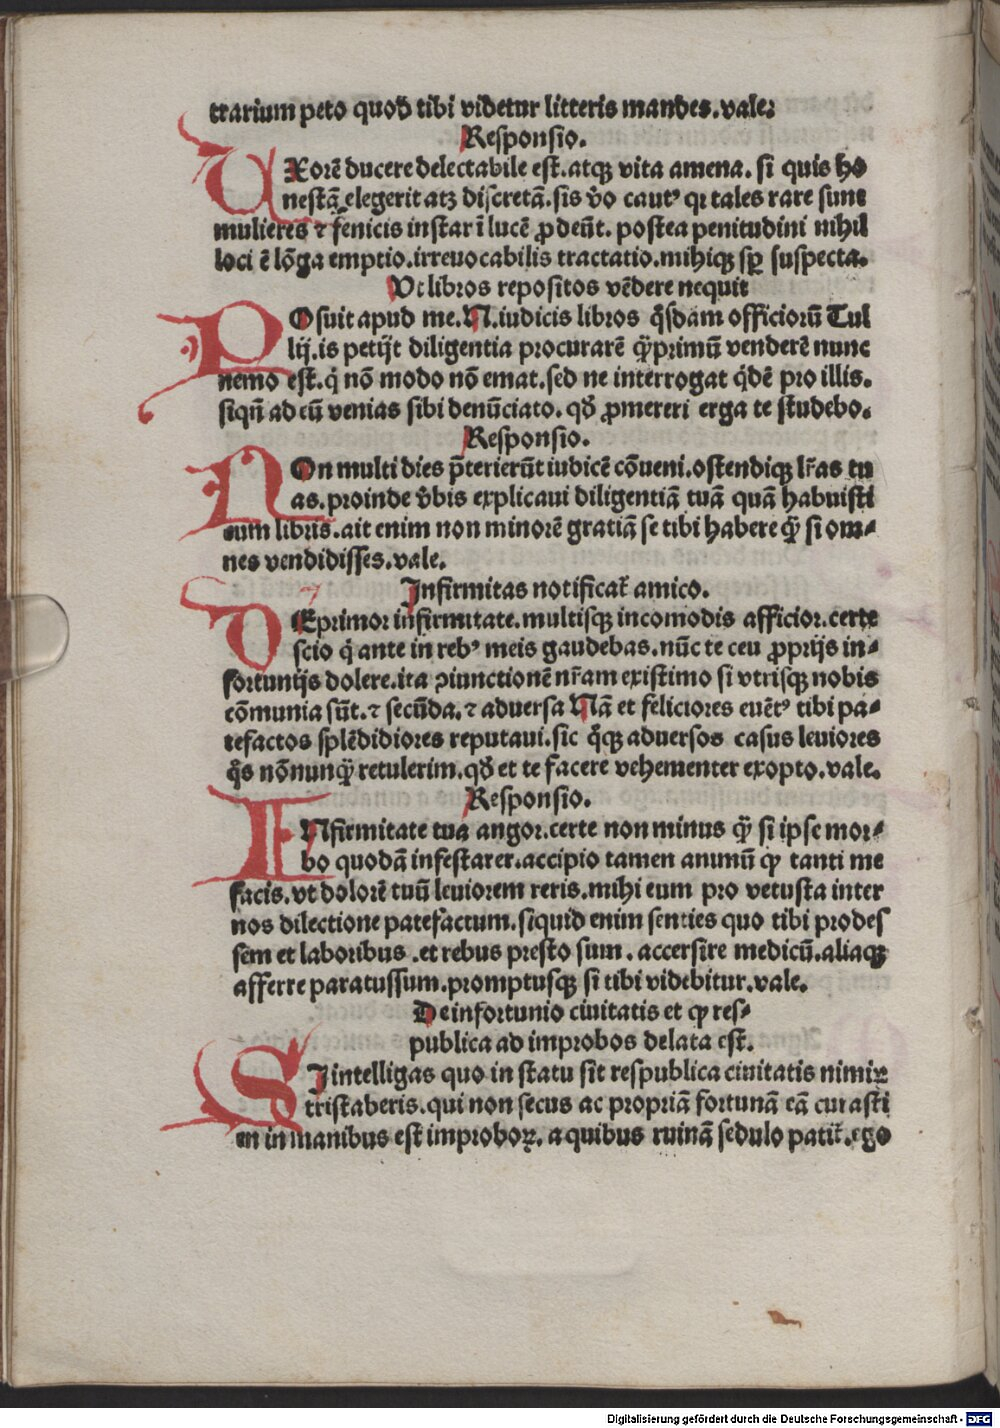 trarium peto quod tibi videtur litteris mandes.vale.
Responsio.
UXorē ducere delectabile est.atqꝫ vita amena.si quis ho
nestā elegerit atqꝫ discretā.sis v̄o cautꝰ qꝛ tales rare sunt
mulieres ⁊ fenicis instar ī lucē ꝓdeūt. postea penitudini nihil
loci ē lōga emptio.irreuocabilis tractatio.mihiqꝫ sꝑ suspecta.
Ut libros repositos vēdere nequit
POsuit apud me.N.iudicis libros q̄sdam officiorū Tul
lij.is petijt diligentia procurarē q̄ꝫprimū venderē nunc
nemo est.q̇ nō modo nō emat.sed ne interrogat q̇dē pro illis.
siqn̄ ad eū venias sibi denūciato.qd̄ ꝓmereri erga te studebo.
Responsio.
NOn multi dies p̄terierūt iudicē cōueni.ostendiqꝫ lr̄as tu
as.proinde v̄bis explicaui diligentiā tuā quā habuisti
cum libris.ait enim non minorē gratiā se tibi habere q̄ꝫ si om-
nes vendidisses.vale.
Infirmitas notificat̄ amico.
DEprimor infirmitate.multisqꝫ incomodis afficior.certe
scio q̇ ante in rebꝰ meis gaudebas.nūc te ceu ꝓprijs in-
fortunijs dolere.ita ꝯiunctionē nr̄am existimo si vtrisqꝫ nobis
cōmunia sūt.⁊ secūda.⁊ aduersa Nā et feliciores euētꝰ tibi pa-
tefactos splēdidiores reputaui.sic q̄qꝫ aduersos casus leuiores
q̄s nōnunq̄ꝫ retulerim.qd̄ et te facere vehementer exopto.vale.
Responsio.
INfirmitate tua angor.certe non minus q̄ꝫ si ipse mor-
bo quodā infestarer.accipio tamen animū ꝙ tanti me
facis.vt dolorē tuū leuiorem reris.mihi eum pro vetusta inter
nos dilectione patefactum.siquid enim senties quo tibi prodes
sem et laboribus.et rebus presto sum.accersire medicū.aliaqꝫ
afferre paratussum.promptusqꝫ si tibi videbitur.vale.
De infortunio ciuitatis et ꝙ res-
publica ad improbos delata est.
SI intelligas quo in statu sit respublica ciuitatis nimiꝝ
tristaberis.qui non secus ac propriā fortunā eā curasti
en in manibus est improboꝝ.a quibus ruinā sedulo patit̄.ego
Digitalisierung gefördert durch die Deutsche Forschungsgemeinschaft - DFG